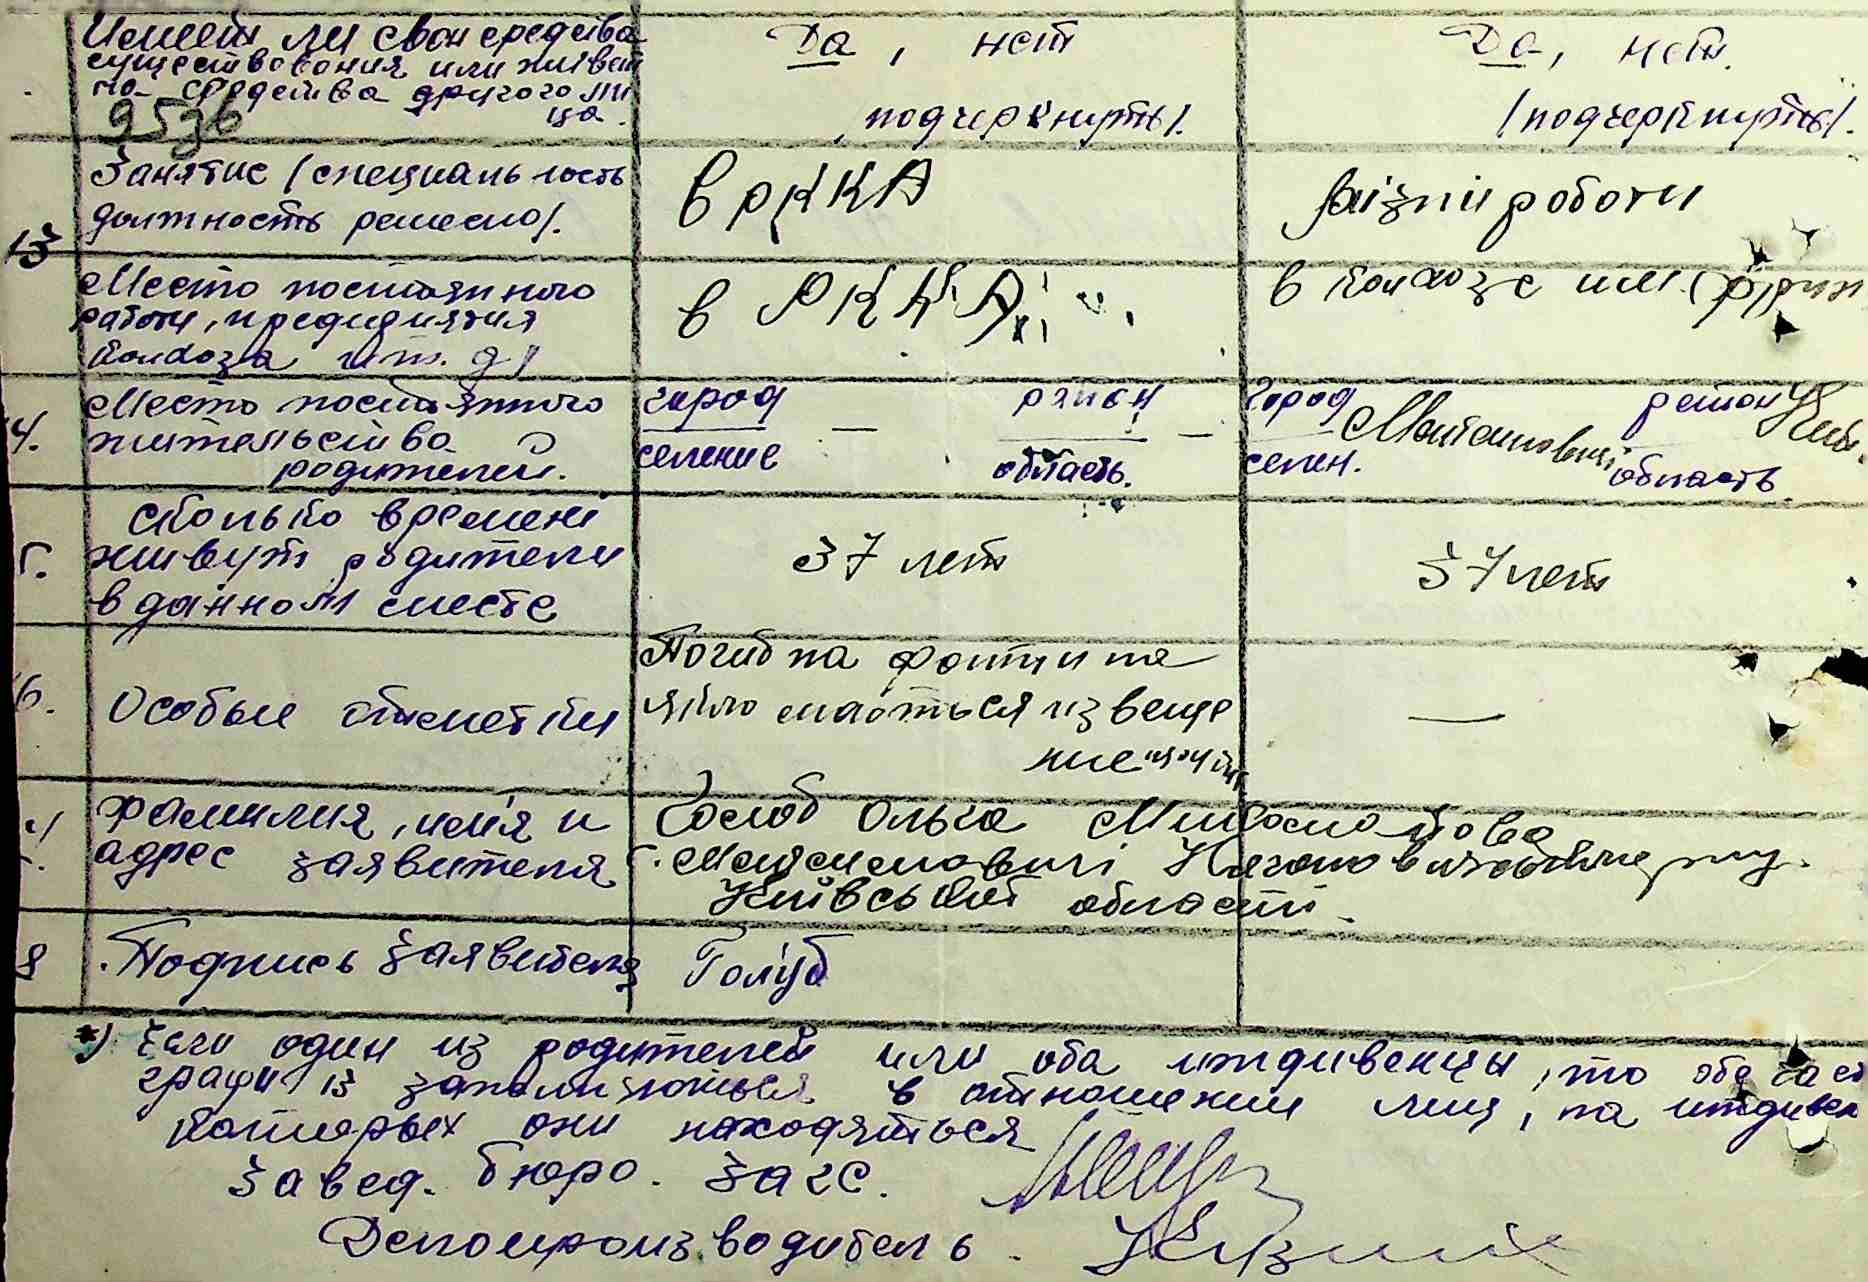 Имеет ли свои средства
существования или живет
на средства другого ли
ца.
9536
Да, нет
подчеркнуть/.
Да, нет.
/подчеркнуть/.
Занятие /специальность
должность ремесло/.
в РККА
різні роботи
13
Место постоянного
работи, предприятия
колхоза и т. д/
в РККА
в колхозе им. Фрун
14.
Место постоянного
жительства
родителей.
город
селение
—
район
область.
—
город
селен.
район
область
5.
сколько времени
живут родители
в данном месте
37 лет
37 лет
6.
Особые отметки
Погиб на фонти на
що мається извеще
ние
—
фамилия, имя и
адрес заявителя
Голуб Ольга
с.
Київської області.
8
Подпись заявителя
Голуб
*) Если один из родителей или оба иждивенцы, то обе
графи 13 заполняються в отношении лиц, на иждивен
которых они находяться
Завед. бюро. Загс.
Делопроизводитель.